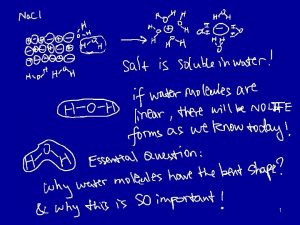 NaCl
salt is soluble in water!
if water molecules are
H-O-H
linear, there will be NO LIFE
forms as we know today!
H O H
Essential Question:
why water molecules have the bent shape?
& why this is SO important!